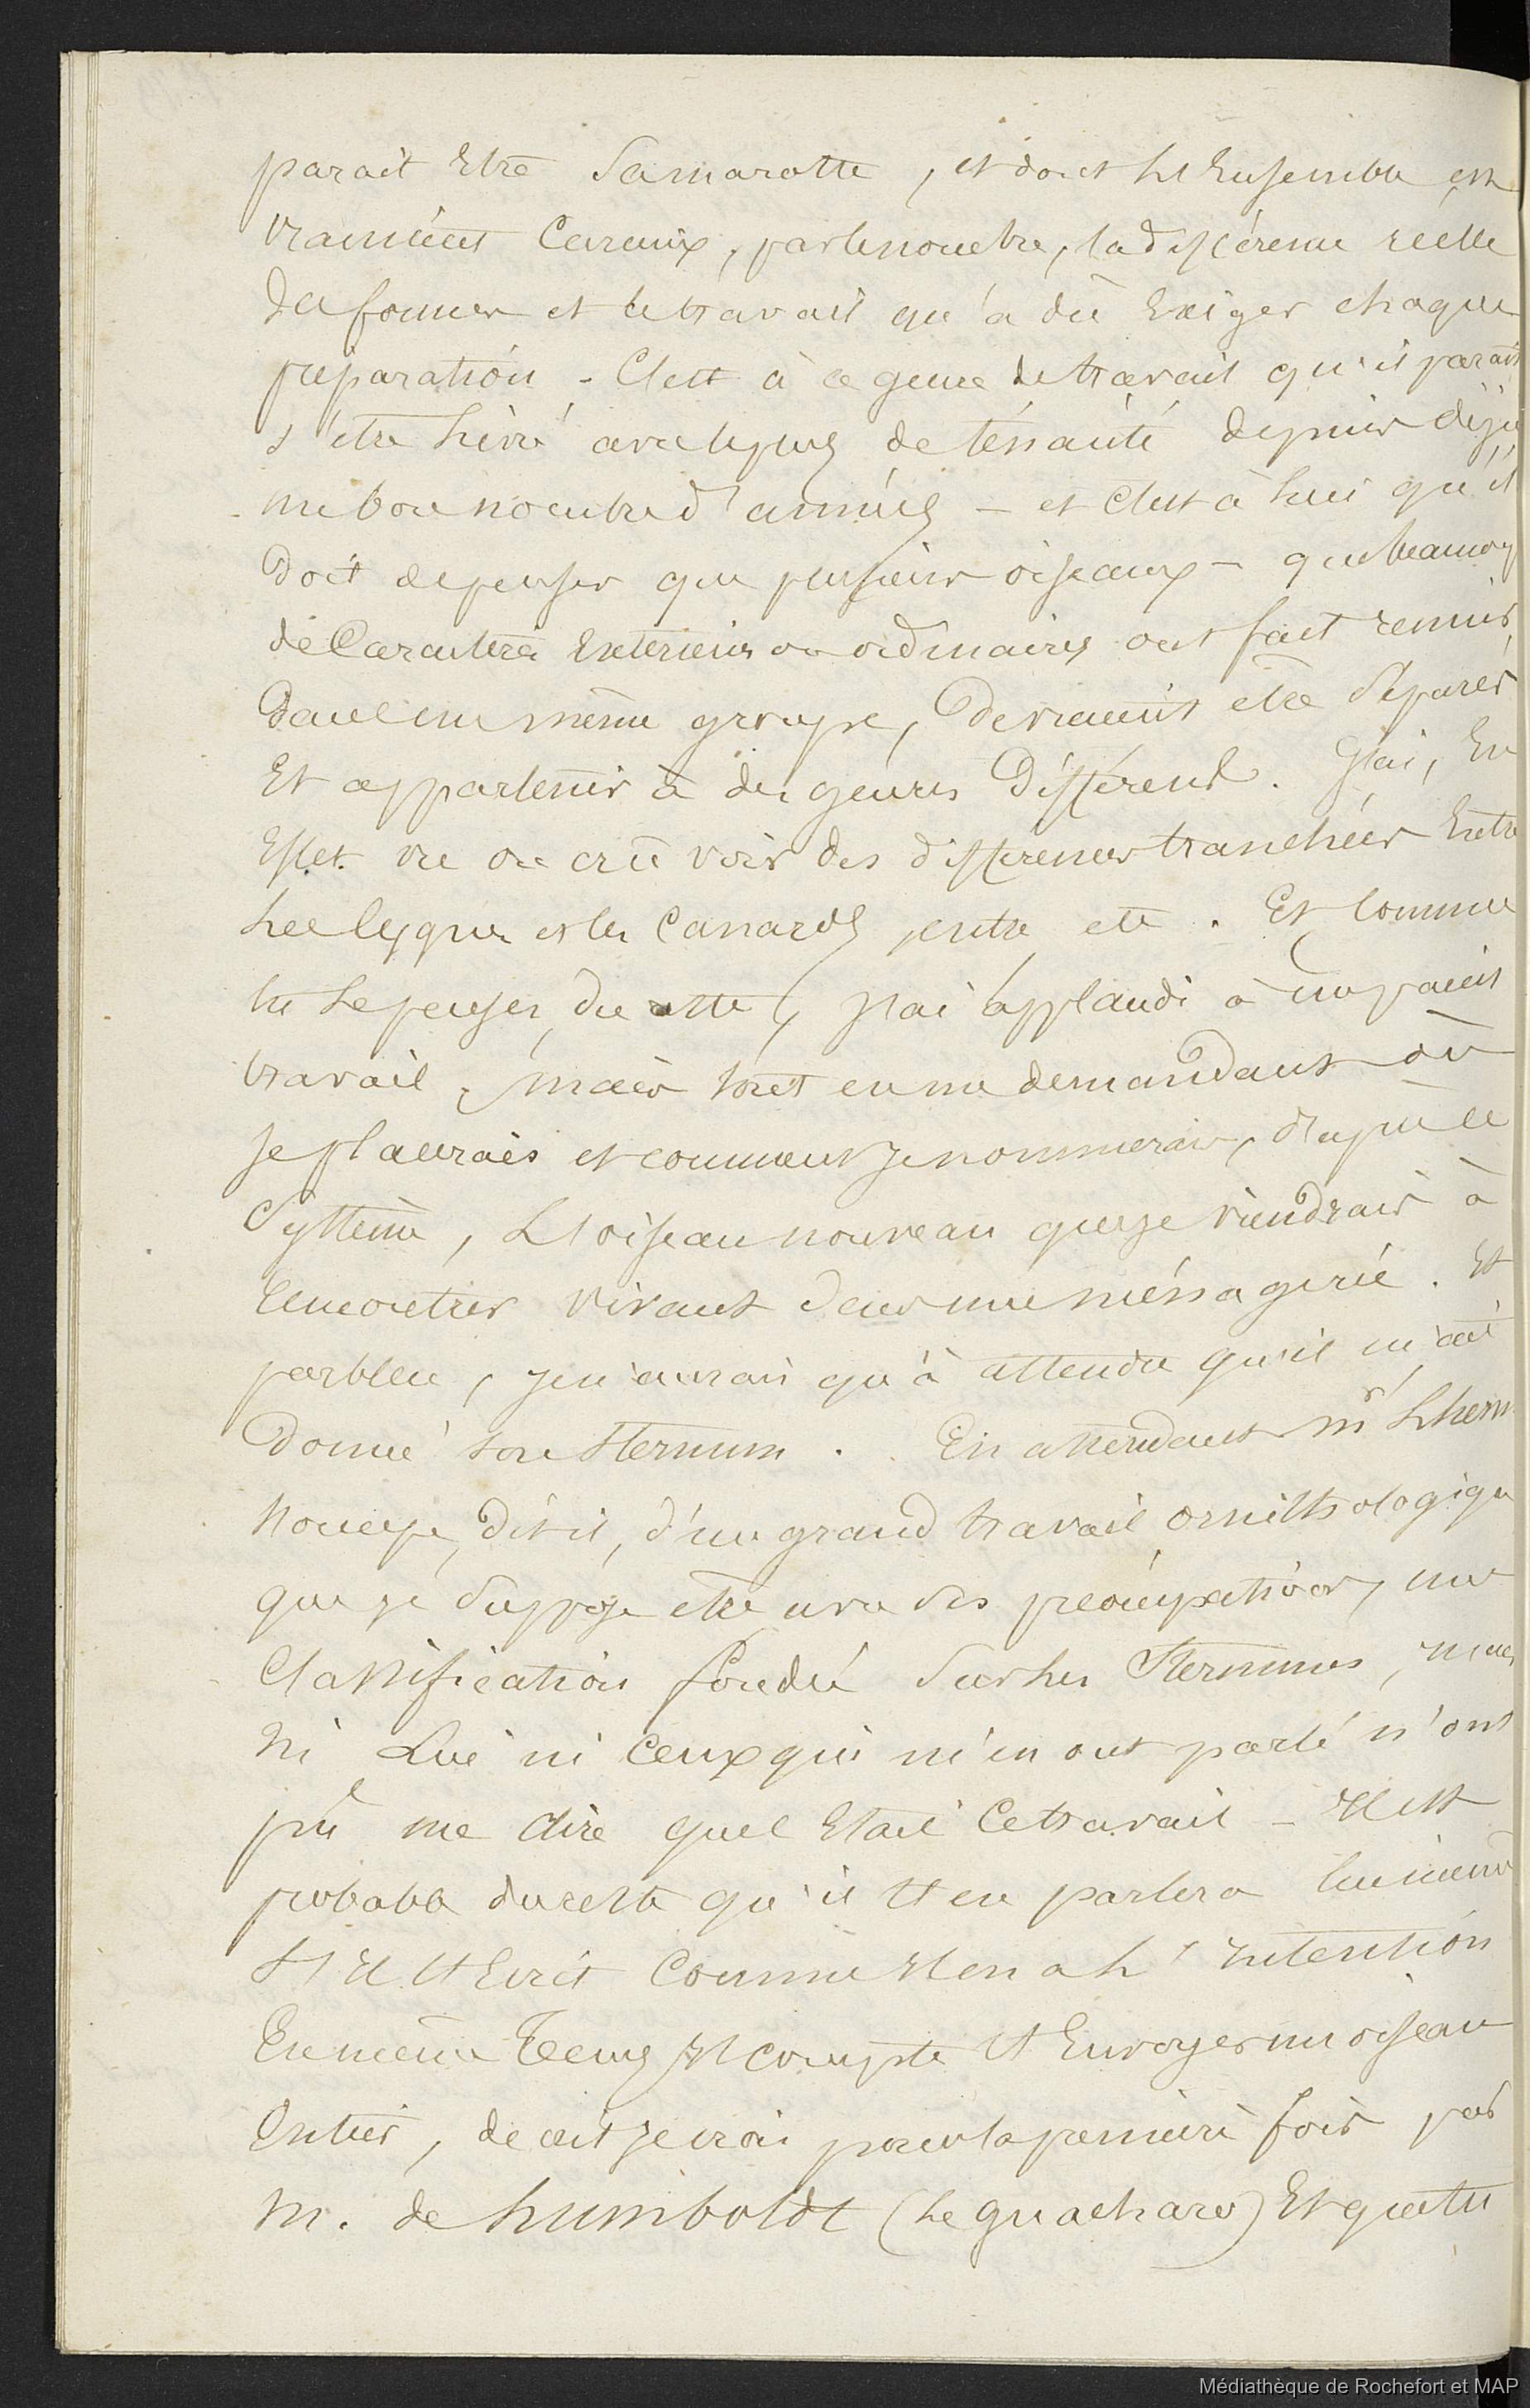 parait Etre Samarotte, et dont l'Ensemble est
vraiment Curieux, par le nombre, la différence réelle
des formes et le travail qu'a dû Exiger chaque
préparation - C'est à ce genre de travail qu'il parait
s'être livré avec le plus de ténacité depuis déja
un bon nombre d'années - et c'est à lui qu'il
doit de penser que plusieurs oiseaux - que beaucoup
de Caractères Extérieurs ou ordinaires ont fait reunir
Dans un même groupe, Devraient etre Séparés
Et appartenir à des genres Différents. J'ai, En
Effet vu ou crû voir des différences tranchées Entre
les Cygnes et les Canards, entre etc. Et Comme
tu le penses du reste, j'ai applaudi à un pareil
travail, mais tout en me demandant où
je placerais et comment je nommerais, d'après ce
Système, L'oiseau nouveau que je viendrais à
rencontrer vivant dans une ménagerie. Et
parbleu, je n'aurais qu'à attendre qu'il m'ait
Donné son Sternum. En attendant Mr Lherm
s'occupe, dit-il, d'un grand travail ornithologique
que je suppose etre une de ses préocupations, une
Classification fondée Sur les Sternums, mais
ni Lui ni Ceux qui m'en ont parlé n'ont
pû me dire quel Etait Ce travail - Il est
probable du reste qu'il t'en parlera lui même
S'Il t'Ecrit Comme Il en a l'Intention
En même Tems Il compte t'Envoyer un oiseau
Entier, décrit je crois pour la première fois par
M. de humboldt (le guacharo) Et que tu